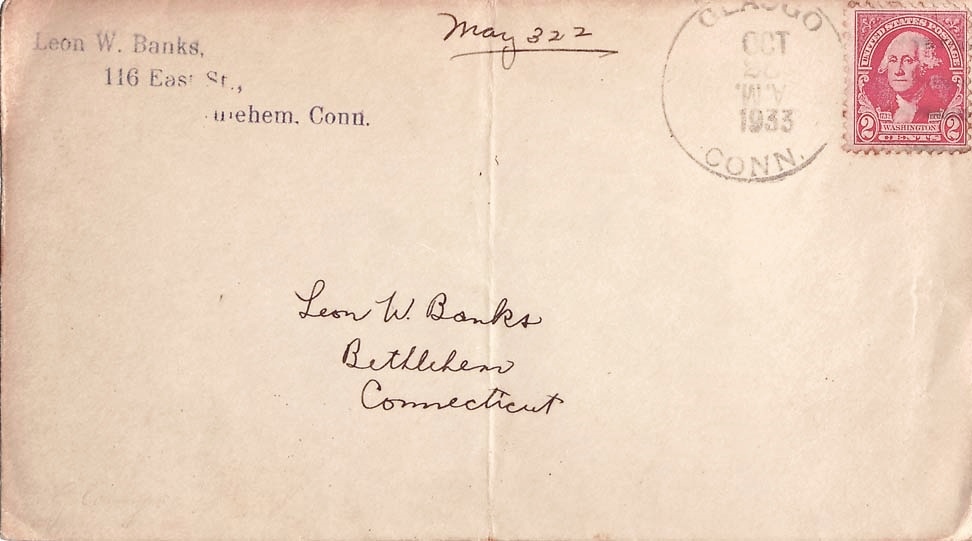 Leon W. Banks,
116 East St.,
thlehem, Conn.
May 322
GLASGO
OCT
23
A.M.
1933
CONN.
UNITED STATES POSTAGE
2 WASHINGTON 2
CENTS
Leon W. Banks
Bethlehem
Connecticut